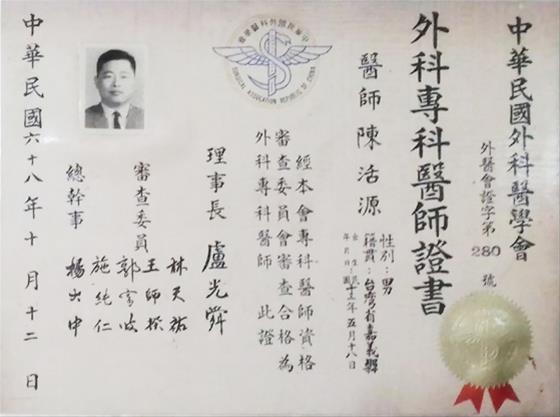 中華民國外科醫學會
外醫會證字第280號
外科專科醫師證書
醫師 陳活源
性別：男
籍貫：台灣省嘉義縣
年五月十八日
經本會專科醫師資格
審查委員會審查合格為
外科專科醫師 此證
理事長 盧光舜
審查委員
林天祐
王師揆
施純仁
總幹事 楊大中
中華民國六十八年十月十二日
中華民國外科醫學會
SURGICAL ASSOCIATION REPUBLIC OF CHINA